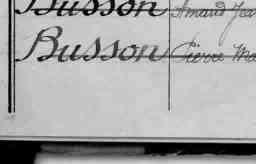 Busson Amand Jea
Busson Pierre Ma